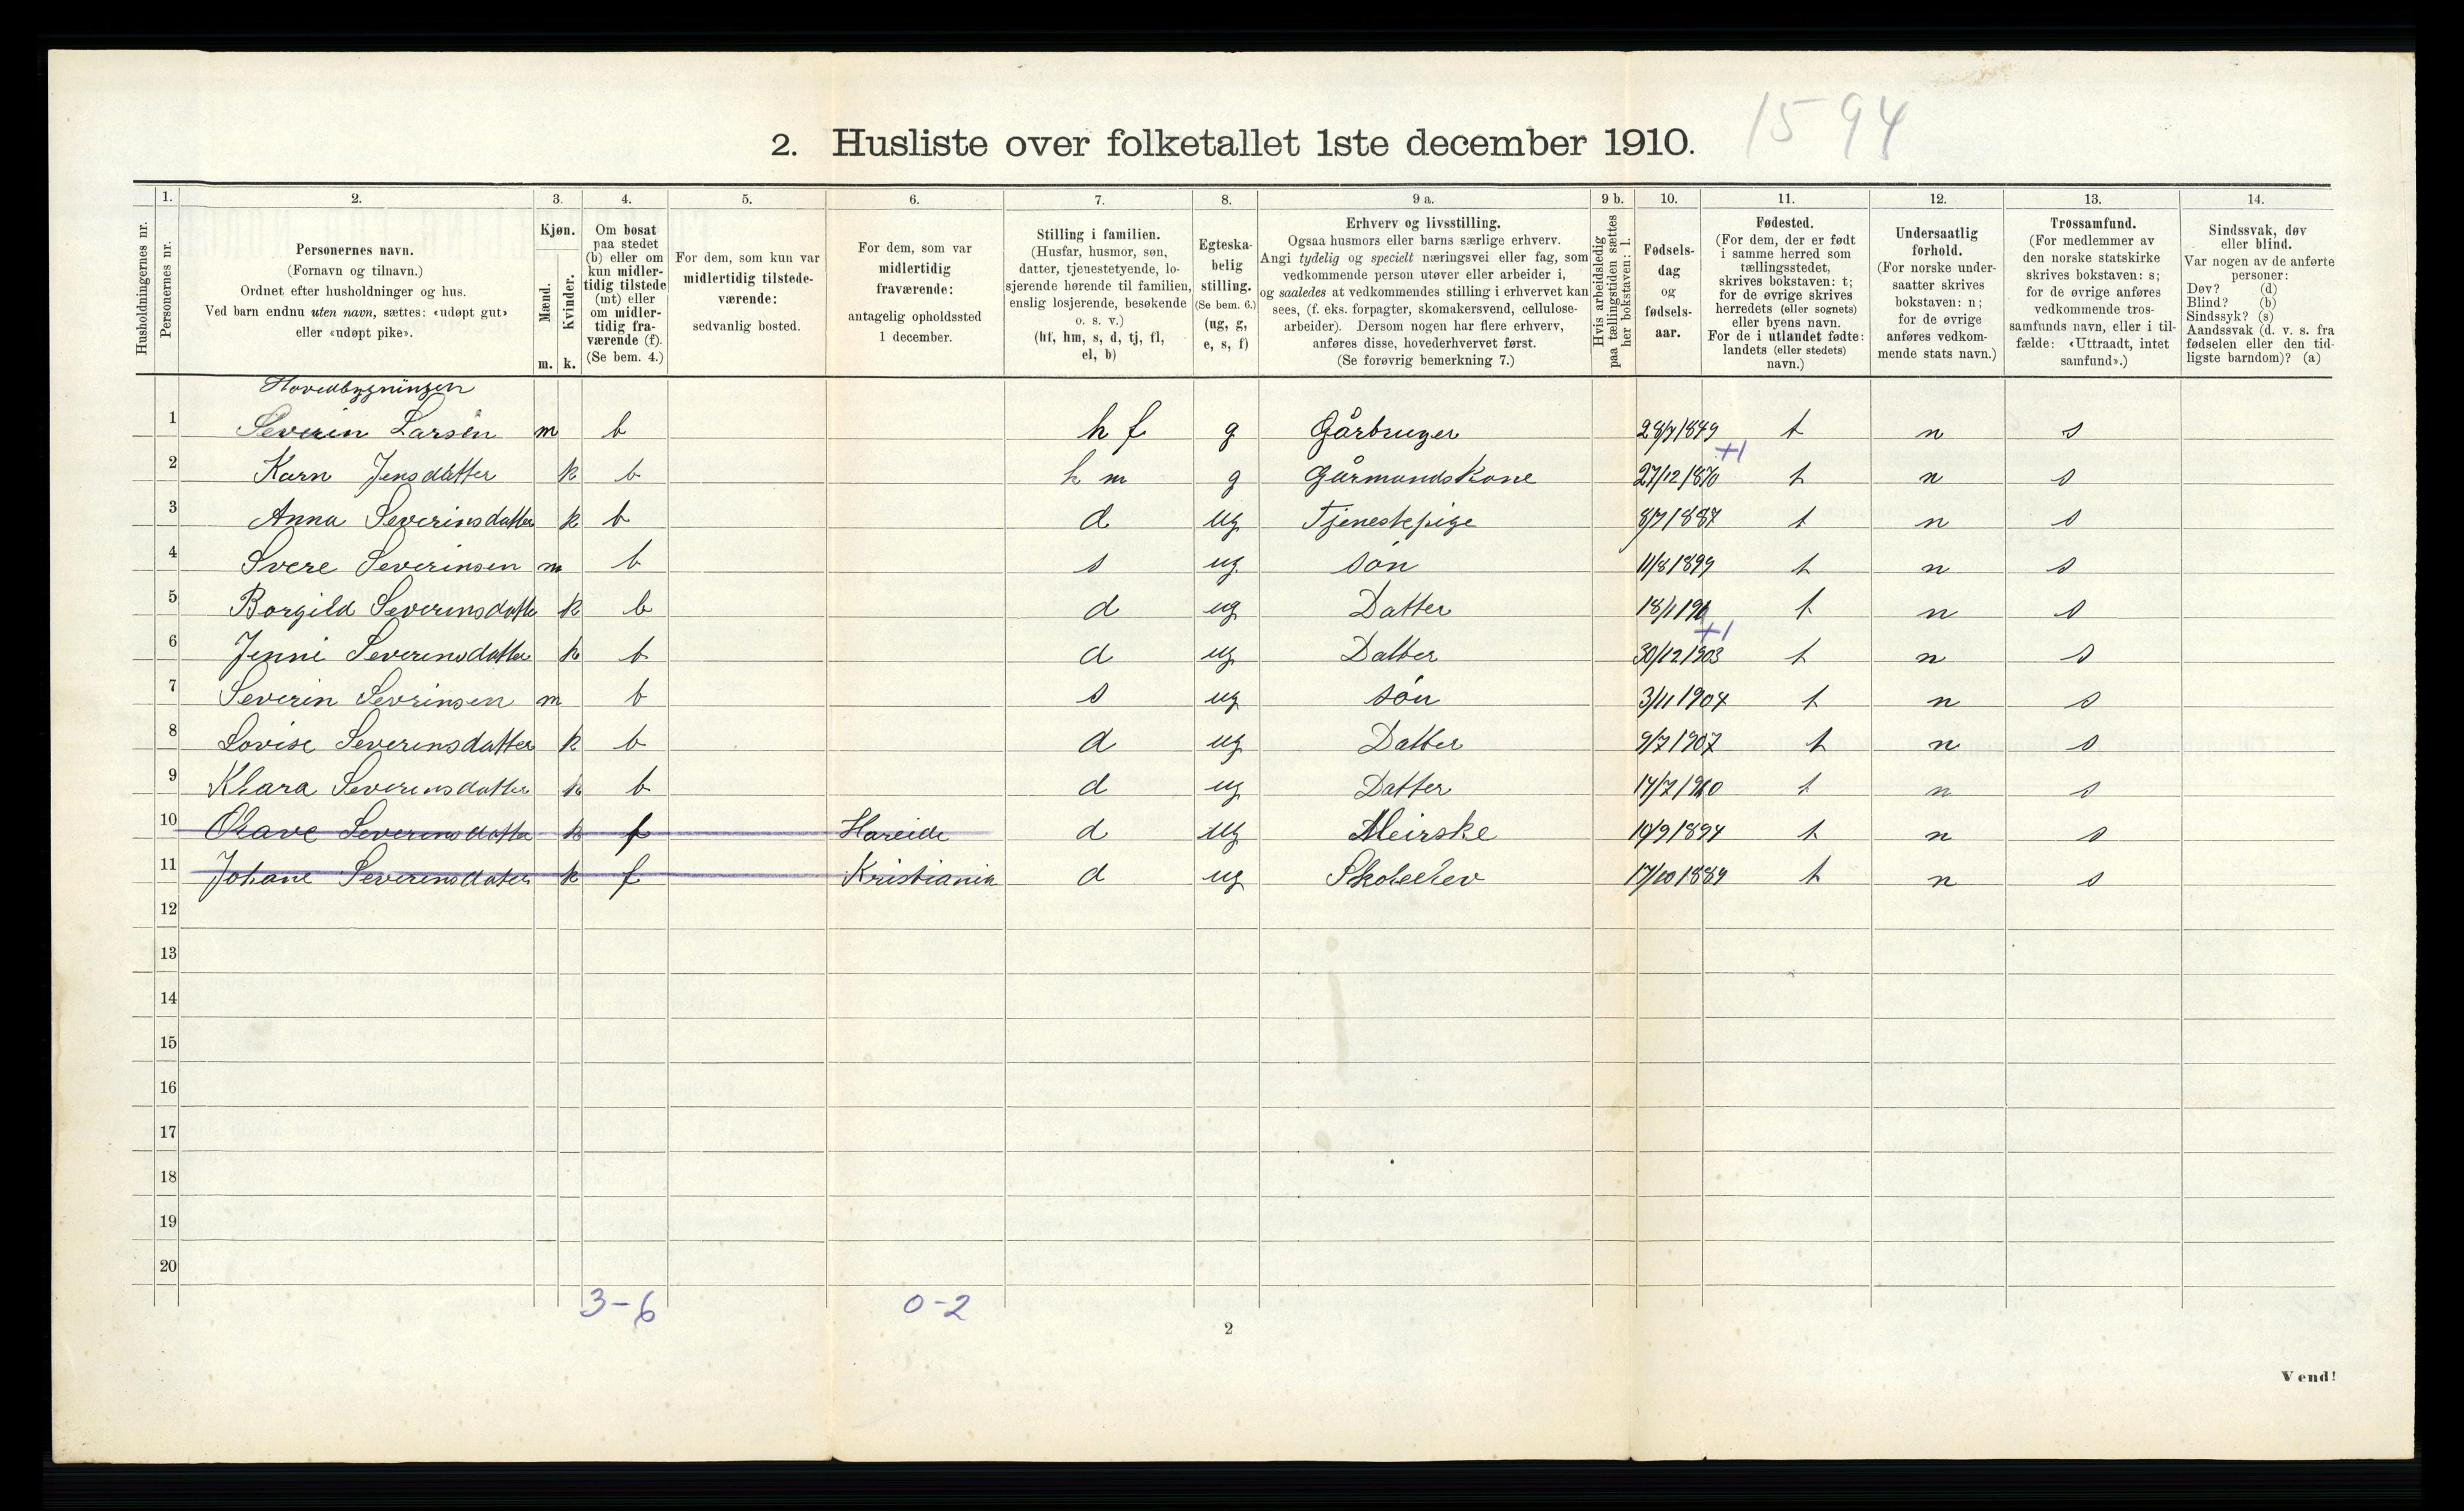 1594
2. Husliste over folketallet 1ste december 1910.
Husholdningernes nr.
1.
Personernes nr.
2.
Personernes navn.
(Fornavn og tilnavn.)
Ordnet efter husholdninger og hus.
Ved barn endnu uten navn, sættes: «udøpt gut»
eller «udøpt pike».
3.
Kjøn.
Mænd.
Kvinder.
m. k.
4.
Om bosat
paa stedet
(b) eller om
kun midler-
tidig tilstede
(mt) eller
om midler-
tidig fra-
værende (f).
(Se bem. 4.)
5.
For dem, som kun var
midlertidig tilstede-
værende:
sedvanlig bosted.
6.
For dem, som var
midlertidig
fraværende:
antagelig opholdssted
1 december.
7.
Stilling i familien.
(Husfar, husmor, søn,
datter, tjenestetyende, lo-
sjerende hørende til familien,
enslig losjerende, besøkende
o. s. v.)
(hf, hm, s, d, tj, fl,
el, b)
8.
Egteska-
belig
stilling.
(Se bem. 6.)
(ug, g,
e, s, f)
9 a.
Erhverv og livsstilling.
Ogsaa husmors eller barns særlige erhverv.
Angi tydelig og specielt næringsvei eller fag, som
vedkommende person utøver eller arbeider i,
og saaledes at vedkommendes stilling i erhvervet kan
sees, (f. eks. forpagter, skomakersvend, cellulose-
arbeider). Dersom nogen har flere erhverv,
anføres disse, hovederhvervet først.
(Se forøvrig bemerkning 7.)
9 b.
Hvis arbeidsledig
paa tællingstiden sættes
her bokstaven: l.
10.
Fødsels-
dag
og
fødsels-
aar.
11.
Fødested.
(For dem, der er født
i samme herred som
tællingsstedet,
skrives bokstaven: t;
for de øvrige skrives
herredets (eller sognets)
eller byens navn.
For de i utlandet fødte:
landets (eller stedets)
navn.)
12.
Undersaatlig
forhold.
(For norske under-
saatter skrives
bokstaven: n;
for de øvrige
anføres vedkom-
mende stats navn.)
13.
Trossamfund.
(For medlemmer av
den norske statskirke
skrives bokstaven: s;
for de øvrige anføres
vedkommende tros-
samfunds navn, eller i til-
fælde: «Uttraadt, intet
samfund».)
14.
Sindssvak, døv
eller blind.
Var nogen av de anførte
personer:
Døv? (d)
Blind? (b)
Sindssyk? (s)
Aandssvak (d. v. s. fra
fødselen eller den tid-
ligste barndom)? (a)
Hovedbygningen
1 Severin Larsen m b h f g Gårbruger 28/7 1849 t n s
+1
2 Karn Jensdatter k b h m g Gårmandskone 27/12 1870 t n s
3 Anna Severinsdatter k b d ug Tjenestepige 8/7 1887 t n s
4 Svere Severinsen m b s ug Søn 11/8 1899 t n s
5 Borgild Severinsdatte k b d ug Datter 18/1 t n s
+1
6 Jenni Severensdatter k b d ug Datter 30/12 1903 t n s
7 Severin Sevrinsen m b s ug Søn 3/11 1904 t n s
8 Lovise Severinsdatter k b d ug Datter 9/7 1907 t n s
9 Klara Severinsdatter k b d ug Datter 14/7 1910 t n s
10 Olave Severinsdatter k f Hareide d ug Meirske 1894 t n s
11 Johane Severinsdater k f Kristiania d ug Skoleelev 17/10 1889 t n s
12
13
14
15
16
17
18
19
20
3-6 0-2
2
Vend!